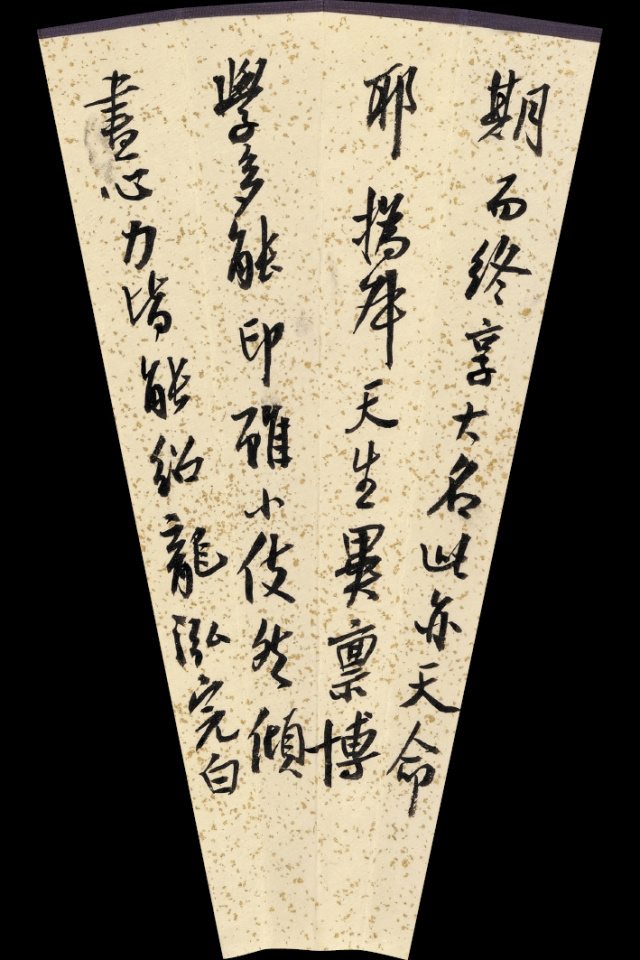 期而終享大名此亦天命
耶撝叔天生異禀博
學多能印雖小伎然傾
盡心力皆能紹龍泓完白